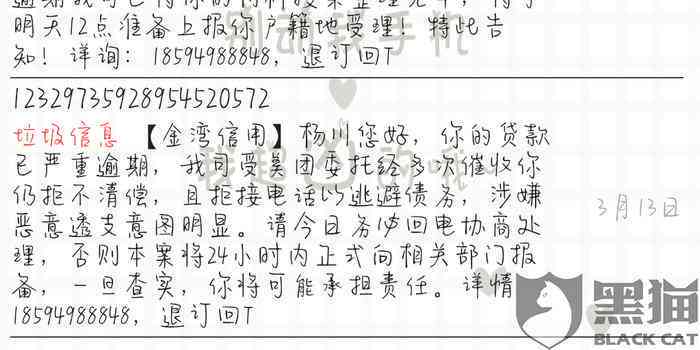 明天12点准备上报你户籍地受理！特此告
知！详询：18594988848，退订回T
12329735928954520572
垃圾信息 【金湾信用】杨川您好，你的贷款
已严重逾期，我司受美团委托经多次催收你
仍拒不清偿，且拒接电话以逃避债务，涉嫌
恶意透支意图明显。请今日务必回电协商处
理，否则本案将24小时内正式向相关部门报
备，一旦查实，你将可能承担责任。详情
18594988848，退订回T
3月13日
黑猫
BLACK CAT